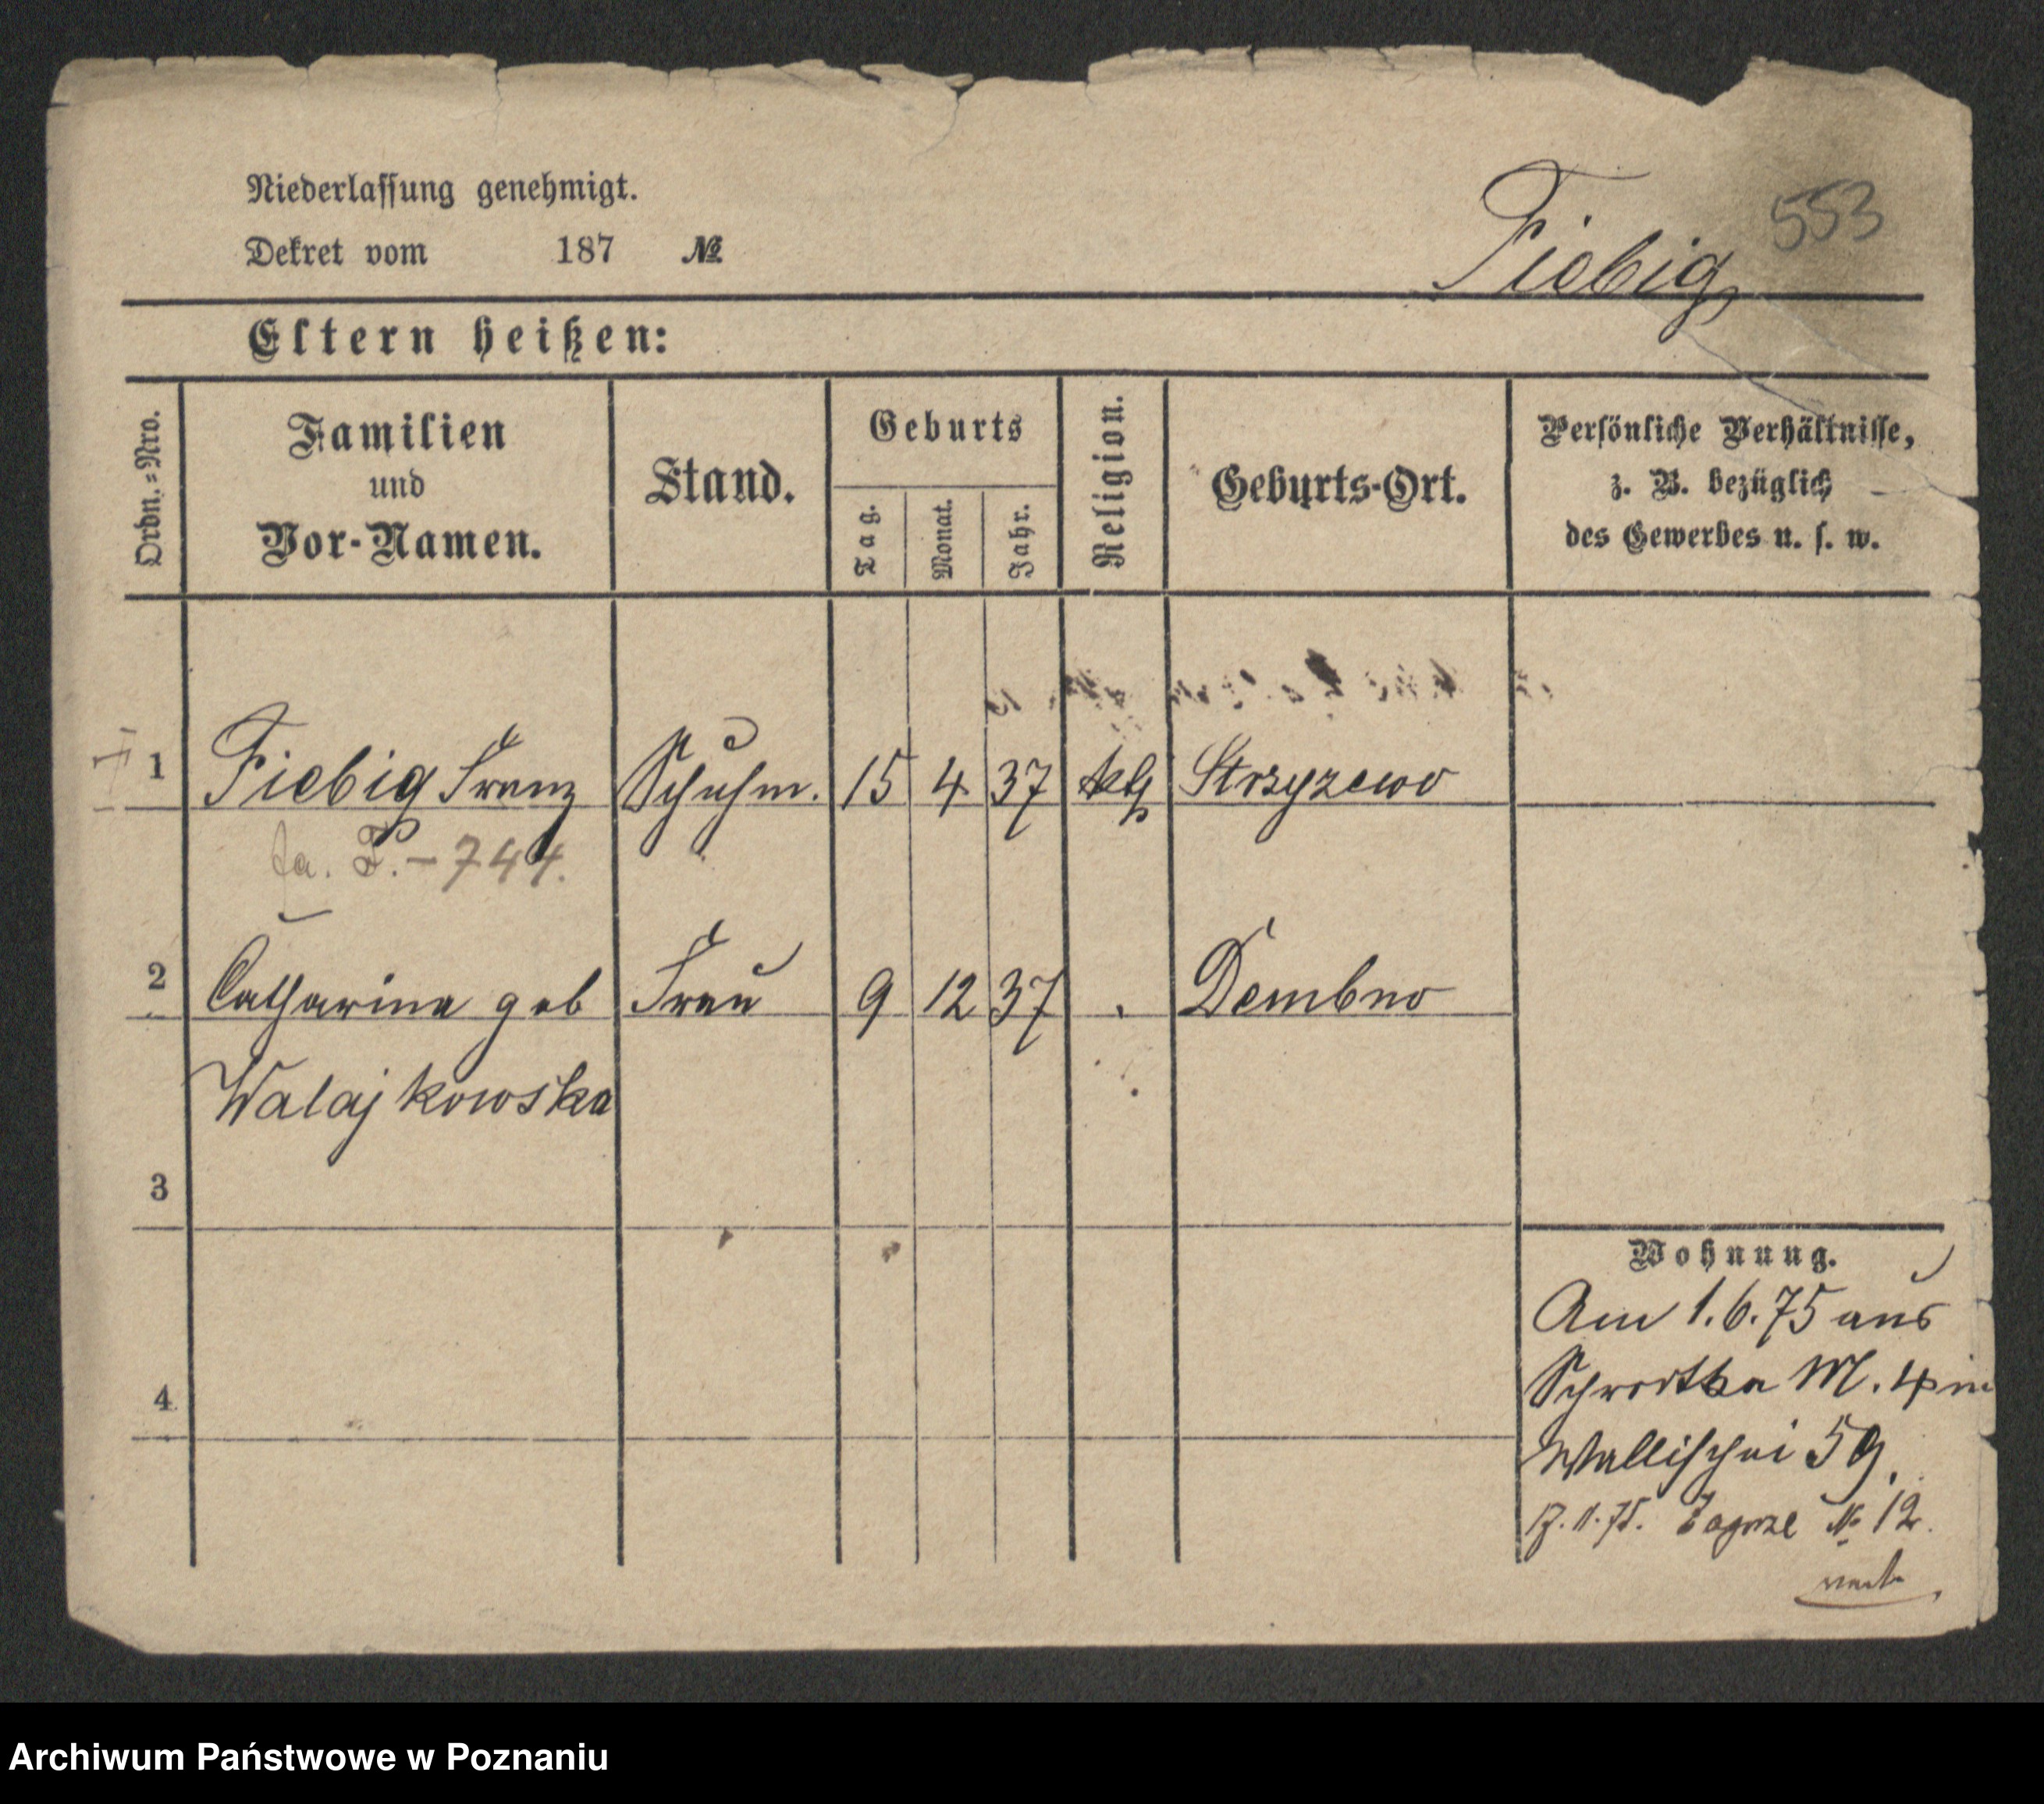 Niederlassung genehmigt.
553
Dekret vom 187 №
Fiebig
Eltern heißen:
Ordn.-Nro.
Familien
und
Vor-Namen.
Stand.
Geburts
Tag.
Monat.
Jahr.
Religion.
Geburts-Ort.
Persönliche Verhältnisse,
z. B. bezüglich
des Gewerbes u. s. w.
1 Fiebig Franz Schuhm. 15 4 37 kth Strzyzewo
fa. F. - 744.
2 Catharina geb Frau 9 12 37 Dembno
Walajkowska
3
Wohnung.
Am 1.6.75 aus
Schrodka M. 4 in
4
Wallischei 59.
17.11.75. Zagorze № 12.
Archiwum Państwowe w Poznaniu